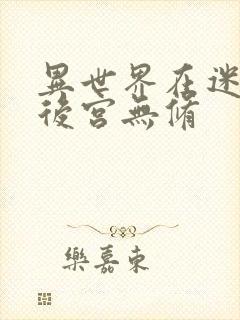 異世界在迷
後宮無脩
樂嘉東